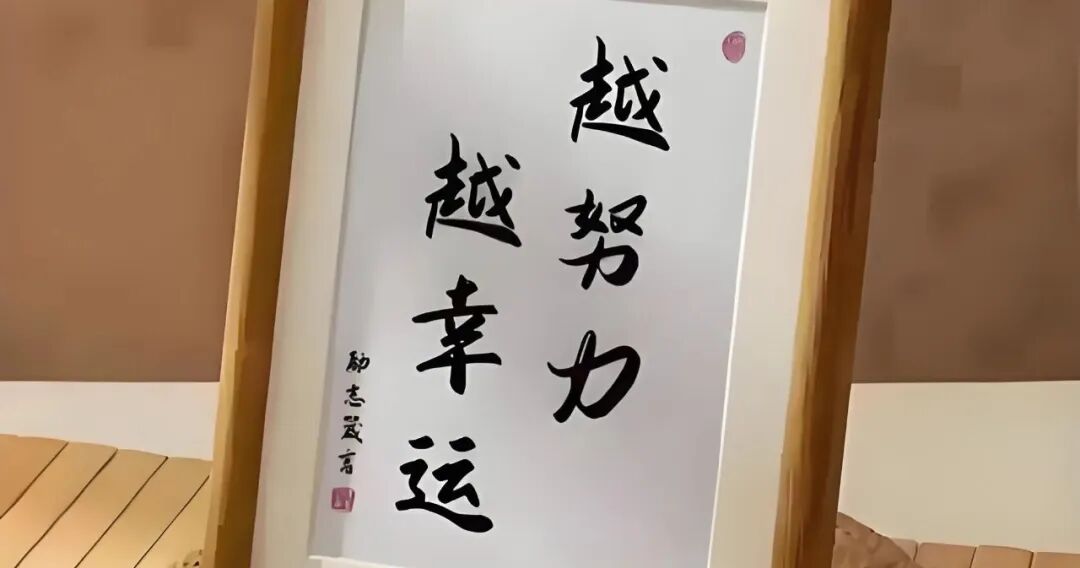 越努力
越幸运
励志箴言